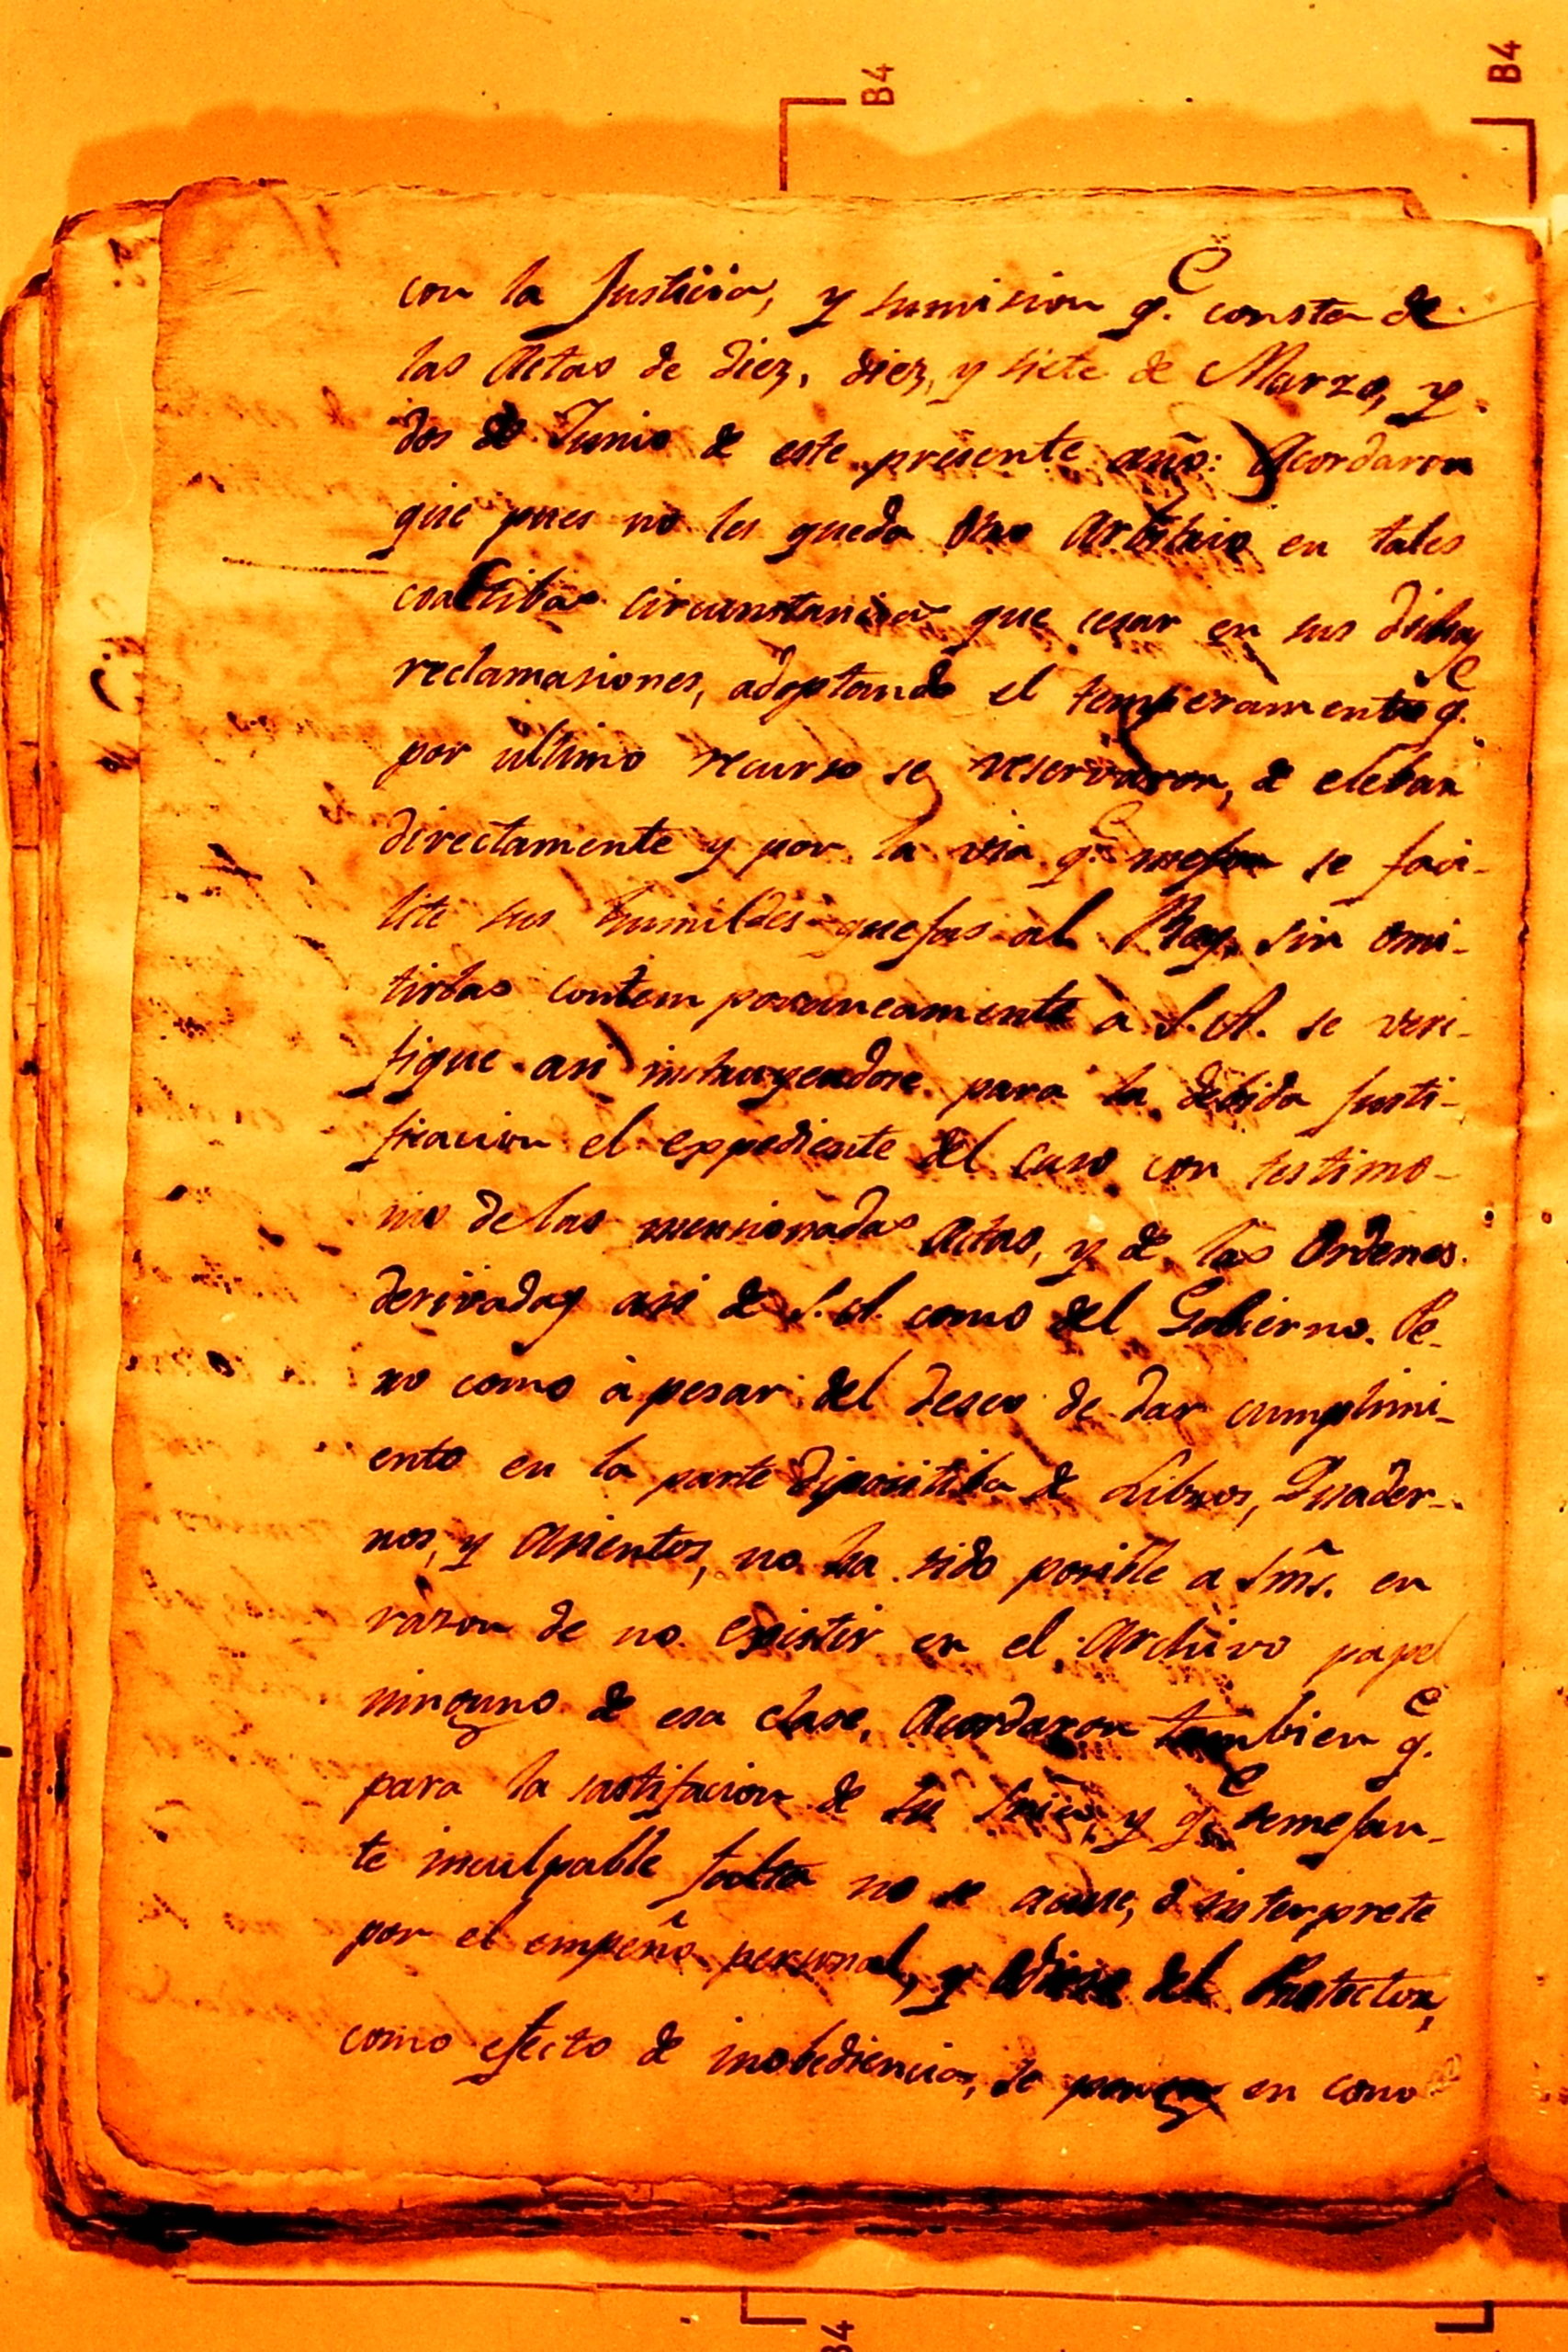 B4
B4
con la Justicia, y sumision q.e consta de
las Actas de Diez, diez, y siete de Marzo, y
dos de Junio de este presente año: Acordaron
que pues no les queda otro Arbitrio en tales
coactibas circunstancias que cesar en sus dichas
reclamasiones, adoptando el temperamento q.e
por ultimo recurso se reservaron, de elebar
directamente y por la via q.e mejor se faci-
lite sus humildes quejas al Rey, sin omi-
tirlas contemporaneamente à S. A. se veri-
fique asi instruyendose para la debida justi-
ficacion el expediente del caso con testimo-
nio de las mencionadas Actas, y de las Ordenes
derivadas asi de S. A. como del Gobierno. Pe-
ro como à pesar del deseo de dar cumplimi-
ento en la parte dipositiba de Libros, Quader-
nos, y Asientos, no ha sido posible a Sms. en
razon de no existir en el Archivo papel
ninguno de esa clase, Acordaron tambien q.e
para la sastifacion de su y q.e semejan-
te inculpable falta no se acuse, ò interprete
por el empeño personal, y del Protector,
como efecto de inobediencia, se ponga en cono
B4